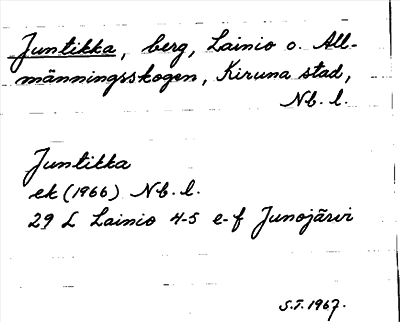 Juntikka, berg, Lainio o. All-
männingsskogen, Kiruna stad,
Nb. l.
Juntikka
ek (1966) Nb. l.
29 L Lainio 4-5 e-f Junojärvi
S.T. 1967.